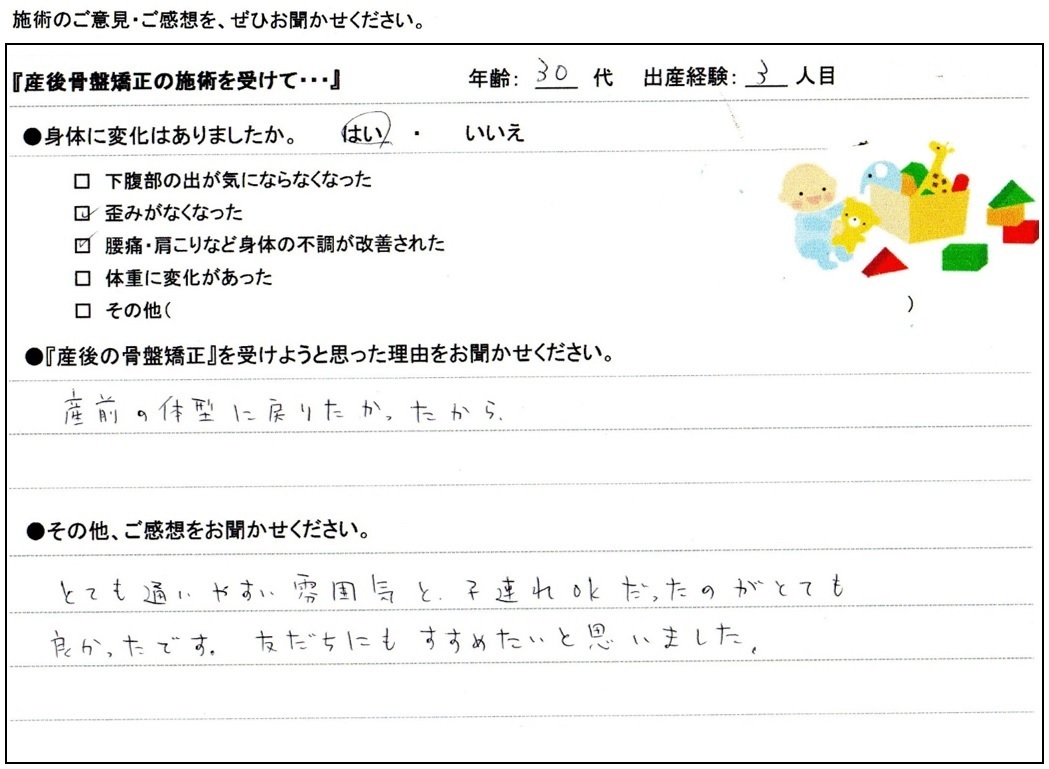 施術のご意見・ご感想を、ぜひお聞かせください。
『産後骨盤矯正の施術を受けて・・・』 年齢: 30 代 出産経験: 3 人目
●身体に変化はありましたか。 はい ・ いいえ
□ 下腹部の出が気にならなくなった
☑ 歪みがなくなった
☑ 腰痛・肩こりなど身体の不調が改善された
□ 体重に変化があった
□ その他( )
●『産後の骨盤矯正』を受けようと思った理由をお聞かせください。
産前の体型に戻りたかったから、
●その他、ご感想をお聞かせください。
とても通いやすい雰囲気と、子連れOKだったのがとても
良かったです。友だちにもすすめたいと思いました。